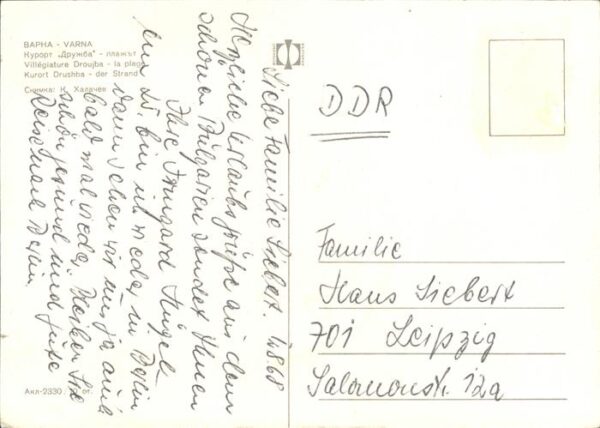 ВАРНА - VARNA
Курорт „Дружба" - плажът
Villégiature Droujba - la plage
Kurort Drushba - der Strand
Снимка: К. Халачев
Liebe Familie Siebert. 4.8.68
Herzliche Urlaubsgrüße aus dem
schönen Bulgarien sendet Ihnen
Ihre Irmgard
bin ich wieder in
dann sehen wir uns ja auch
bald mal wieder. Bleiben Sie
schön gesund und gute
Akл-2330
DDR
Familie
Hans Siebert
701 Leipzig
Salomonstr. 12a